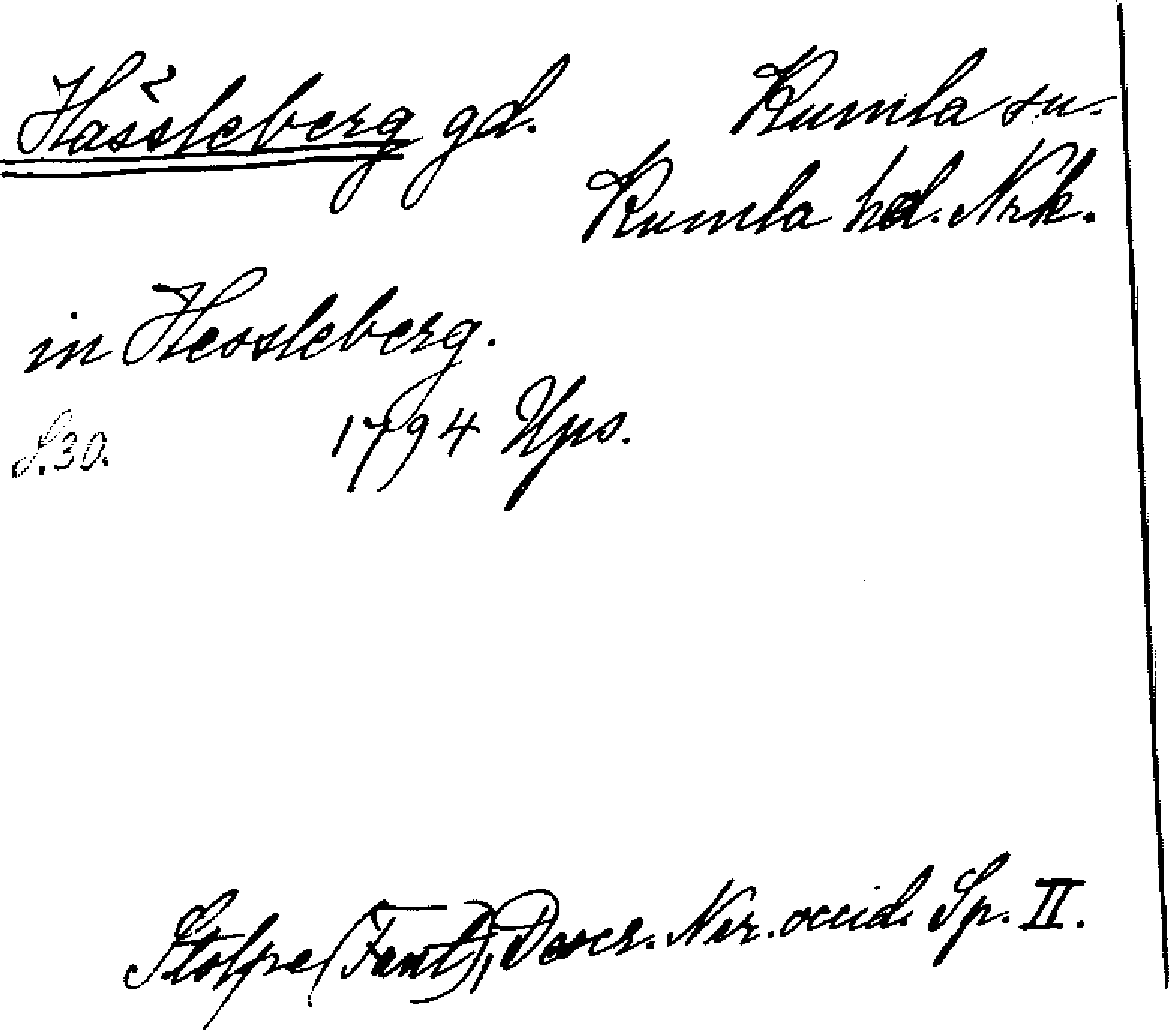 Hässleberg gd. Kumla sn.
Kumla hd. Nrk.
in Hessleberg.
S. 30. 1794 Ups.
Stolpe (Fant), Descr. Ner. occid. Sp. II.